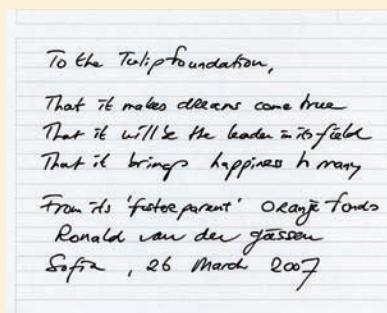 To the Tulip foundation,
That it makes dreams come true
That it will be the leader in its field
That it brings happiness to many
From its 'foster parent' Oranje fonds
Ronald van der Giessen
Sofia, 26 March 2007